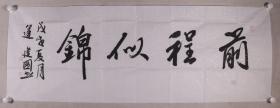 前程似錦
戊戌夏月